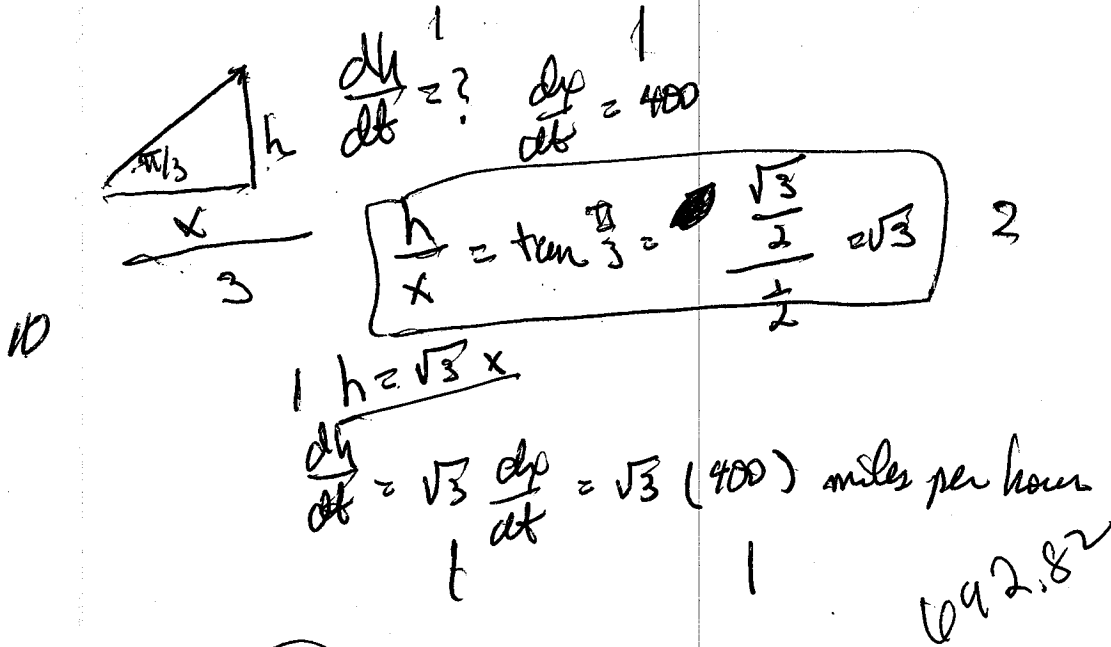 1 1
dh/dt = ? dx/dt = 400
π/3 h
x
3
h/x = tan π/3 = (√3/2)/(1/2) = √3 2
10
1 h = √3 x
dh/dt = √3 dx/dt = √3 (400) miles per hour
1 1
692.82